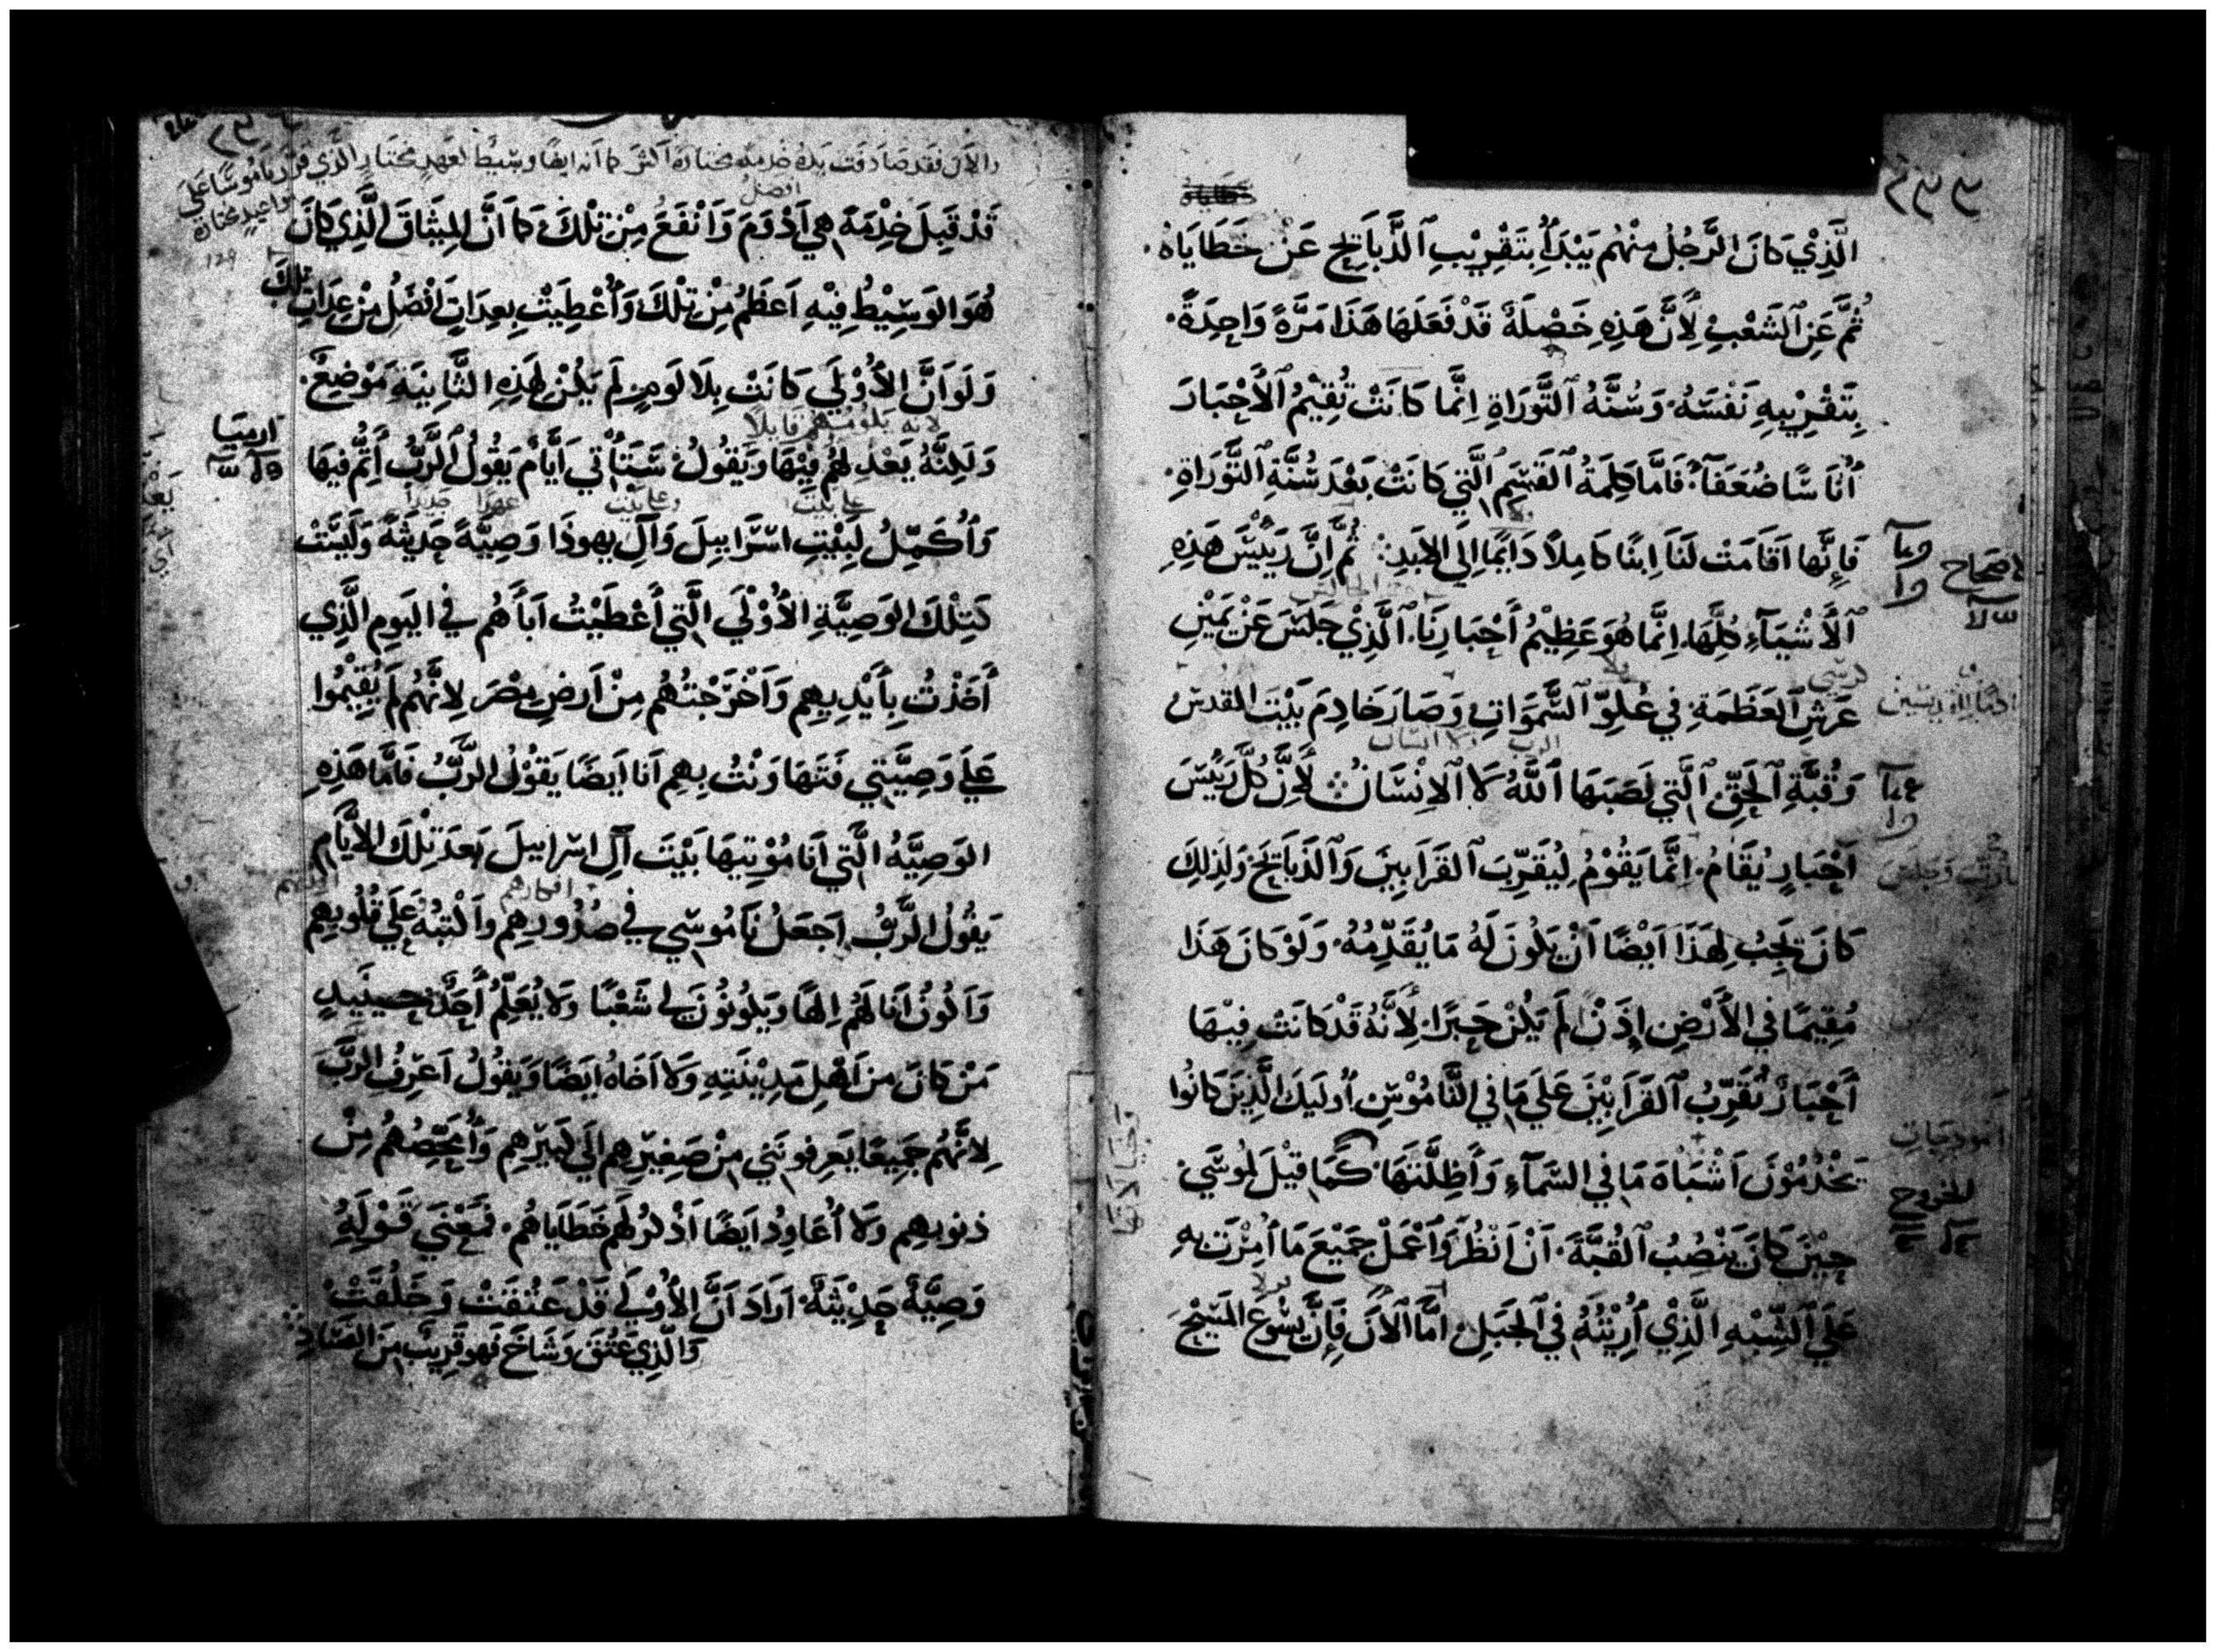 الَّذِيْ كَانَ الرَّجُلُ مِنْهُم يَبْدَأُ بِتَقْرِيْبِ ٱلذَّبَايِحِ عَنْ خَطَايَاهُ.
ثُمَّ عَنِ ٱلشَعْبِ لِأَنَّ هَذِهِ خَصْلَةٌ قَدْ فَعَلَهَا هَذَا مَرَّةً وَاحِدَةً.
بِتَقْرِيْبِهِ نَفْسَهُ. وَسُنَّهُ ٱلتَّوْرَاةِ اِنَّمَا كَانَتْ تُقِيْمُ ٱلأَحْبَارَ
أُنَاسًا ضُعَفَآءُ. فَامَّا كَلِمَةُ ٱلقَسَمِ ٱلَّتِي كَانَتْ بَعْدَ سُنَّةِ ٱلتَّوْرَاةِ.
فَإِنَّهَا اَقَامَتْ لَنَا اِبنًا كَامِلاً دَايمًا اِلَي الابَدِ: ثُمَّ اِنَّ رَيِيْسَ هَذِهِ
ٱلأَشْيَآءِ كُلَّهَا. اِنَّمَا هُوَ عَظِيْمُ أَحْبَارِنَا. ٱلَّذِيْ جَلَسَ عَنْ يَمِيْنِ
عَرشِ ٱلعَظَمَةِ فِي عُلوِّ ٱلسَّمَوَاتِ وَصَارَ خَادِمَ بَيْتَ المقدس
وَقُبَّةِ ٱلحَقِّ ٱلَّتِي نَصَبَهَا ٱللَّهُ لَا ٱلاِنْسَانُ لأَنَّ كُلَّ رَيِيْسَ
اَحْبَارٍ يُقَامُ. اِنَّمَا يَقُوْمُ لِيُقَرِّبَ ٱلقَرَابِينَ وَٱلذَبَايِحَ وَلِذلِكَ
كَانَ يَجِبُ لِهَذَا اَيْضًا اَنْ يَكُونَ لَهُ مَا يُقَدِّمُهُ. وَلَوْ كَانَ هَذَا
مُقِيمًا فِي الأَرْضِ إِذَنْ لَمْ يَكُنْ حَبرًا. لِأَنَّهُ قَدْ كَانَتْ فِيْهَا
أَحْبَارٌ تُقَرِّبُ ٱلقَرَابِيْنَ عَلَي مَا فِي النَّامُوْسِ اُولَيِكَ الَّذِينَ كَانُوا
يَخْدُمُوْنَ اَشْبَاهَ مَا فِي السَمَآءِ وَأَظِلَّتَهَا. كَمَا قِيْلَ لمُوسَي
حِيْنَ كَانَ يَنْصُبُ ٱلقُبَّةَ. اَنْ اَنْظُرْ وَٱعْمَلْ جَمِيْعَ مَا أُمِرْتَ بِهِ
عَلَي ٱلشِّبْهِ الَّذِيْ أُرِيْتَهُ فِي ٱلجَبَلِ. اَمَّا ٱلاَنَ فَإِنَّ يَسُوْعَ المَسِيْحَ
الاصحاح
للخروج
قَدْ قَبِلَ خِدْمَةً هِي اَدْوَمَ وَاَنْفَعَ مِنْ تِلْكَ كَمَا اَنَّ المِيثَاقَ الَّذِي كَانَ
هُوَ الوَسِيْطُ فِيْهِ اَعظَمُ مِنْ تِلْكَ وَأُعْطِيَتْ بِعِدَاتٍ اَفْضَلُ مِنْ عِدَاتِ تِلْكَ
وَلَو اَنَّ الأُوْلَي كَانَتْ بِلَا لَومٍ لَم يَكُنْ لِهَذِهِ الثَّانِيَةِ مَوْضِعٌ.
وَلَكِنَّهُ يَعْذِلهُم فِيْهَا وَيَقُولُ سَتَأْتِي اَيَّامٌ يَقُولُ ٱلرَّبُّ أُتِمُّ فِيهَا
وَأُكَمِّلُ لِبَيْتِ اسْرَاييلَ وَآلِ يهوذَا وَصِيَّةً حَدِيثَةً وَلَيسَتْ
كَتِلْكَ الوَصِيَّةِ الأُوْلَي الَّتِي أَعْطَيْتُ اَبَآءَهُم فِي اليَومِ الَّذِي
أَخَذْتُ بِأَيْدِيهِم وَاَخْرَجْتُهُم مِنْ اَرضِ مِصْرَ لِأنَّهُم لَم يُقِيْمُوا
عَلَي وَصِيَّتِي فَتَهَاوَنْتُ بِهِم اَنا اَيضًا يَقُوْلُ الرَّبُّ فَامَّا هَذِهِ
الوَصِيَّهُ الَّتِي اَنَا مُوْتِيهَا بَيْتَ آلِ اسْرَاييلَ بَعدَ تِلْكَ الاَيَّامِ
يَقُولُ الرَّبُّ اَجعَلُ نَامُوسِي فِي صُدُورِهِم وَاَكْتبُهُ عَلَي قُلُوبِهِم
وَاَكُونُ اَنَا لَهُم اِلهًا وَيَكُونُوْنَ لِي شَعْبًا وَلَا يُعَلِّمُ أَحَدٌ حِينَيِذٍ
مَنْ كَانَ مِن اَهْلِ مَدِيْنَتِهِ وَلَا اَخَاهُ اَيضًا وَيَقُولُ اَعرِفُ الرَّبَّ
لِانَّهُم جَمِيعًا يَعرِفُونَنِي مِنْ صَغِيْرِهِم اِلَي كَبيْرِهِم وَأُمَحِّصُهُم مِنْ
ذنوبهم وَلَا أُعَاوِدُ اَيضًا اَذْكرُ لَهُم خَطَايَاهُم. فَمَعْنَي قَوْلِهِ
وَصِيَّةً حَدِيْثَةً اَرَادَ اَنَّ الأُوْلَي قَدْ عَتُقَتْ وَخَلُقَتْ
وَالَّذِي عَتُقَ وَشَاخَ فَهو قَرِيبٌ مِنَ الفَسَادِ
ارميا